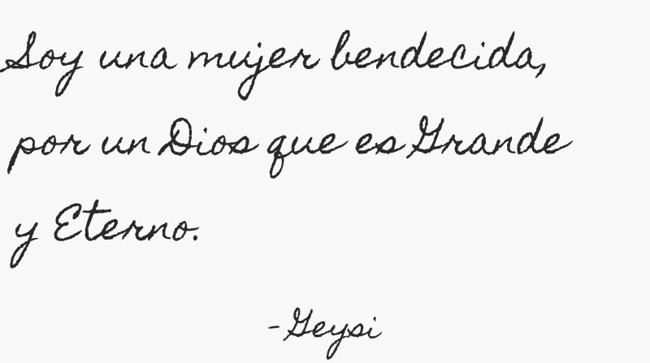 Soy una mujer bendecida,
por un Dios que es Grande
y Eterno.
-Geysi